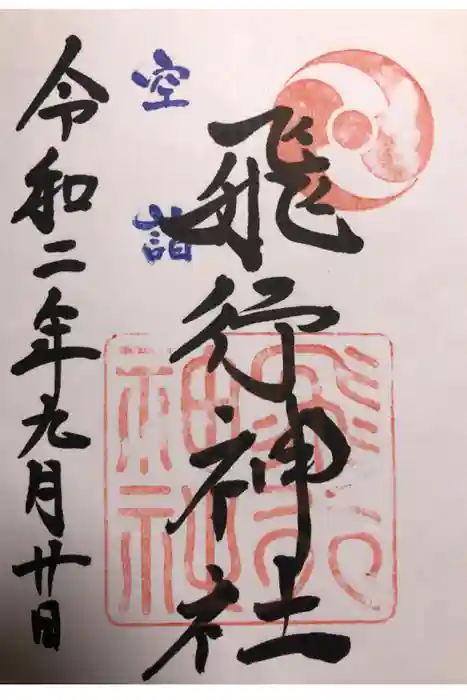 空詣
飛行神社
令和二年九月廿日
飛行神社